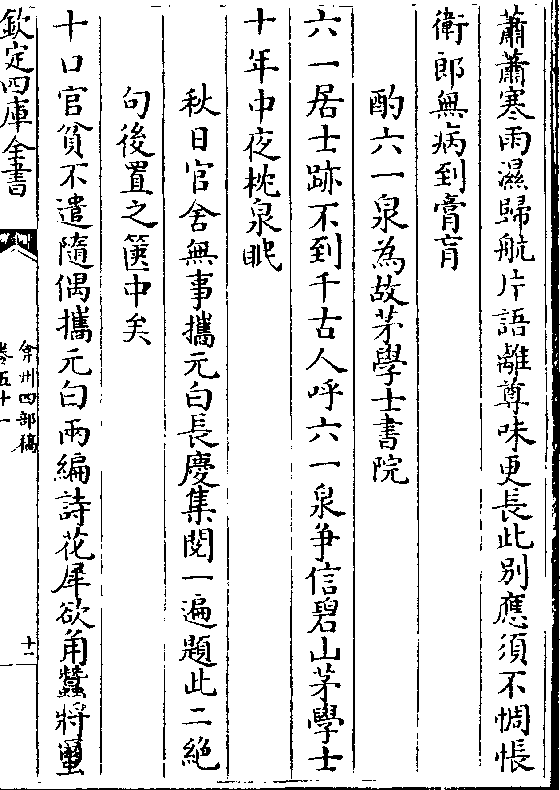 蕭蕭寒雨濕歸航片語離尊味更長此别應須不惆悵
衛郎無病到膏肓
酌六一泉為故茅學士書院
六一居士跡不到千古人呼六一泉争信碧山茅學士
十年中夜枕泉眠
秋日官舍無事攜元白長慶集閱一遍題此二絶
句後置之篋中矣
十口官貧不遣隨偶攜元白兩編詩花犀欲角蠶將蛩
欽定四庫全書
弇州四部稿
卷五十一
十二